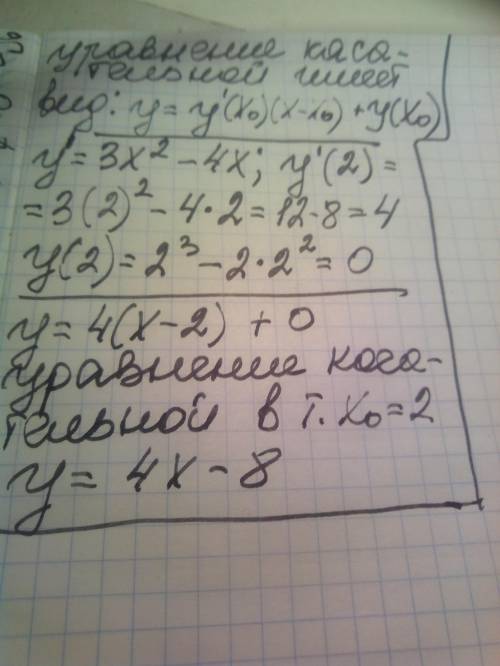 уравнение каса-
тельной имеет
вид: y = y'(x₀)(x-x₀) + y(x₀)
y' = 3x² - 4x; y'(2) =
= 3(2)² - 4·2 = 12-8 = 4
y(2) = 2³ - 2·2² = 0
y = 4(x-2) + 0
уравнение каса-
тельной в т. x₀ = 2
y = 4x - 8